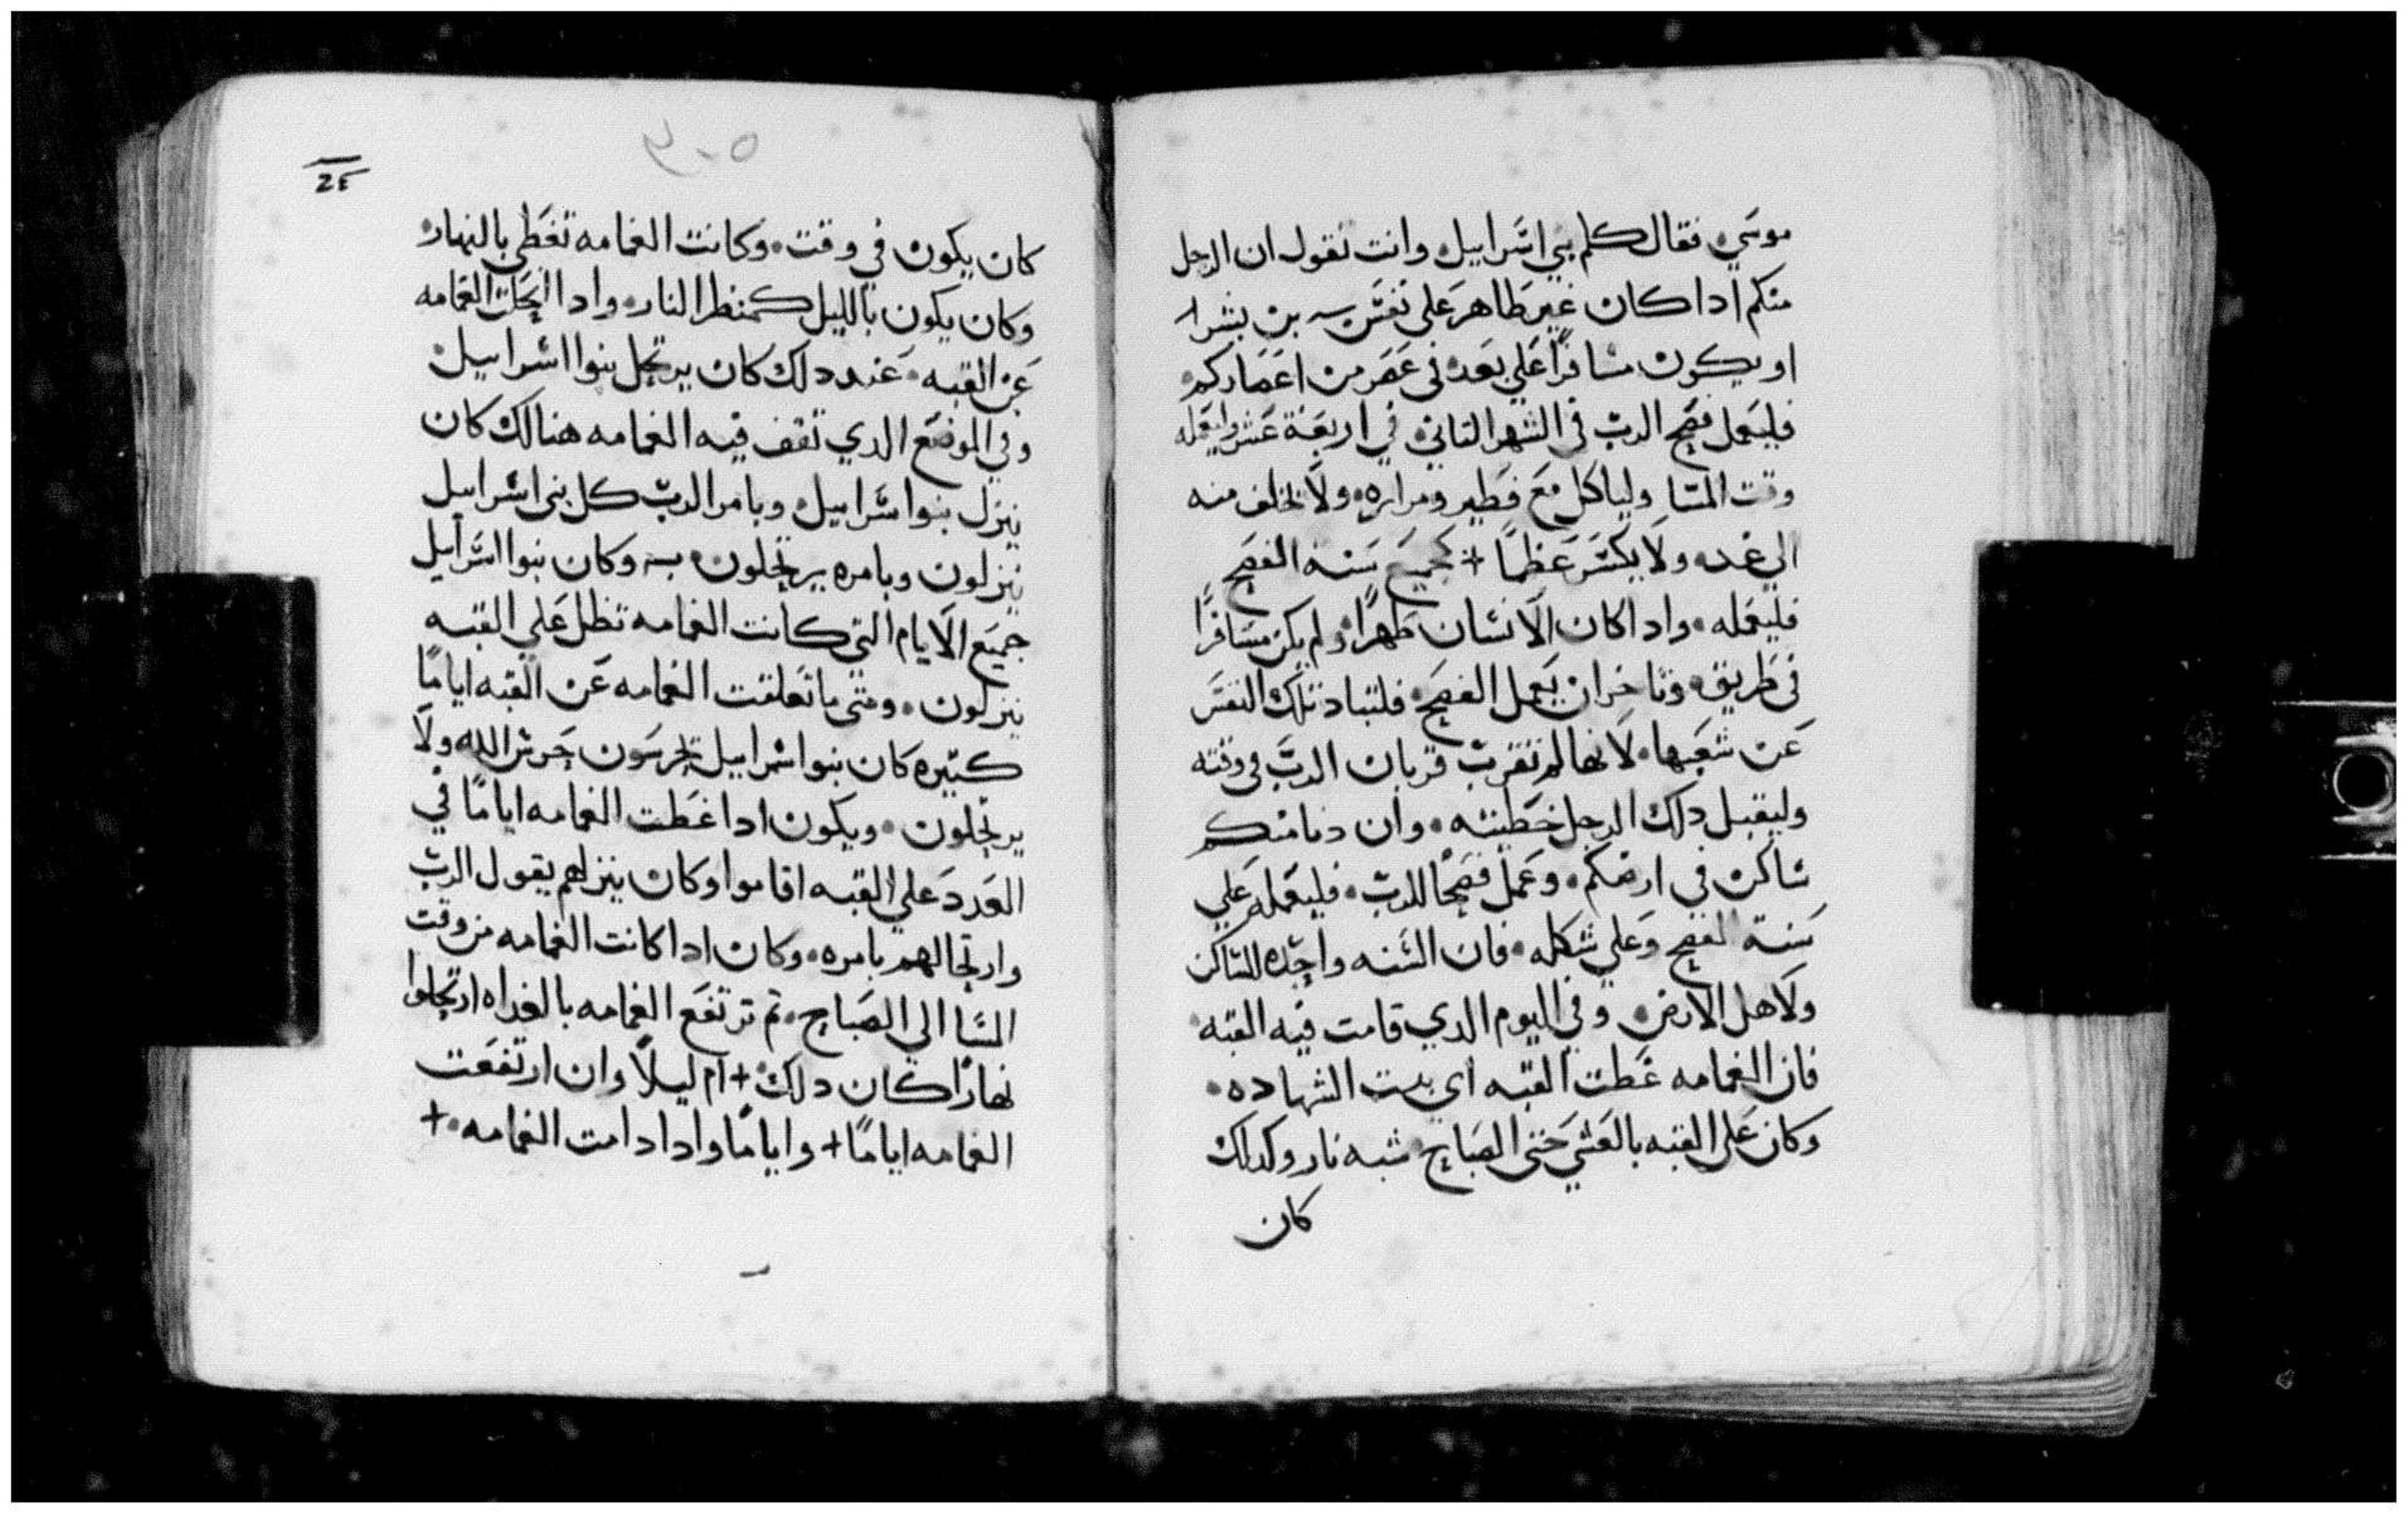 موسي فقال كلم بني اسراييل وانت تقول ان الرجل
منكم ادا كان غير طاهر علي نفس بن بشر
او يكون مسافرًا علي بعد في عصر من اعصاركم
فليعمل فصح الرب في الشهر التاني في اربعة عشر وليعمله
وقت المسا ولياكل مع فطير ومراره ولا يخلف منه
الي غد ولا يكسر عظمًا + كجميع سنه الفصح
فليعمله وادا كان الانسان طهرًا ولم يكن مسافرًا
في طريق وتاخر ان يعمل الفصح فلتباد تلك النفس
عن شعبها لانها لم تقرب قربان الرب في وقته
وليقبل دلك الرجل خطيته وان دنا منكم
ساكن في ارضكم وعمل فصحًا للرب فليعمله علي
سنة الفصح وعلي شكله فان السنه واحده للساكن
ولاهل الارض وفي اليوم الدي قامت فيه القبه
فان الغمامه غطت القبه اي بيت الشهاده
وكان علي القبه بالعشي حتي الصباح شبه نار وكدلك
كان
٢٤
كان يكون في وقت وكانت الغمامه تغطي بالنهار
وكان يكون بالليل كمنظر النار وادا انجلت الغمامه
عن القبه عند دلك كان يرتحل بنوا اسراييل
وفي الموضع الدي تقف فيه الغمامه هنالك كان
ينزل بنوا سراييل وبامر الرب كل بني اسراييل
ينزلون وبامره يرتحلون به وكان بنوا اسراييل
جميع الايام التي كانت الغمامه تظل علي القبه
ينزلون ومتي ما تعلقت الغمامه عن القبه ايامًا
كتيره كان بنوا اسراييل يحرسون حرس الله ولا
يرتحلون ويكون ادا غطت الغمامه ايامًا في
العدد علي القبه اقاموا وكان ينزلهم بقول الرب
وارتحالهم بامره وكان ادا كانت الغمامه من وقت
المسا الي الصباح تم ترتفع الغمامه بالغداه ارتحلوا
نهارًا كان دلك + ام ليلًا وان ارتفعت
الغمامه ايامًا + وايامًا وادا دامت الغمامه +